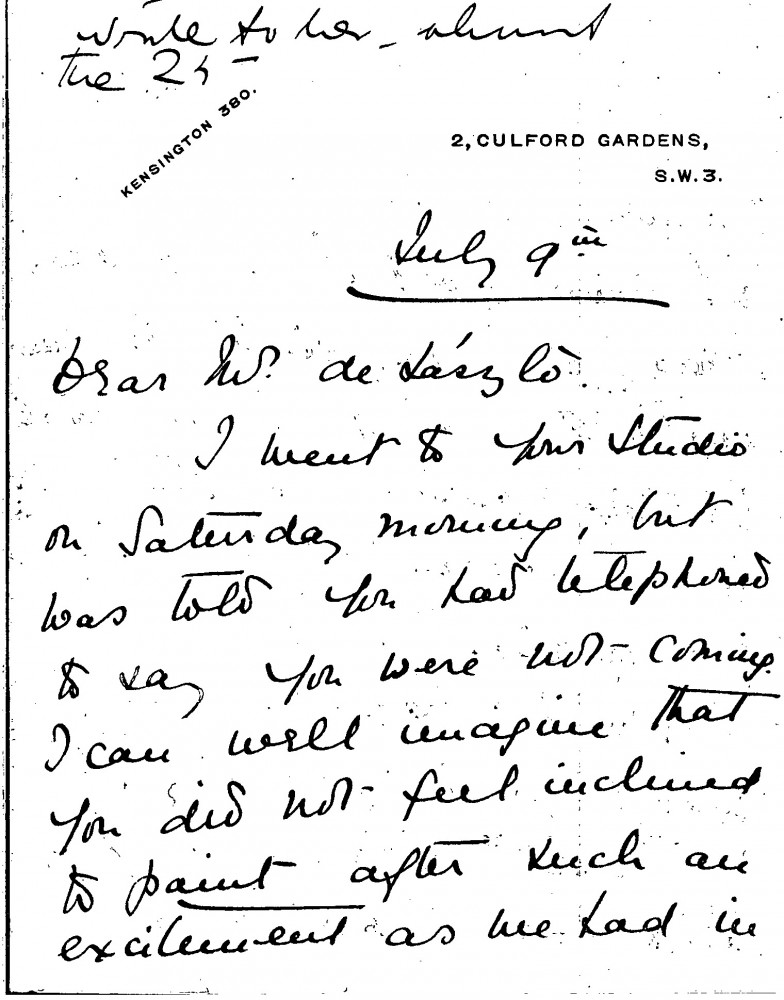 write to her – about
the 25th
KENSINGTON 380.
2, CULFORD GARDENS,
S.W.3.
July 9th
Dear Mr. de László.
I went to your studio
on Saturday morning, but
was told you had telephoned
to say you were not coming.
I can well imagine that
you did not feel inclined
to paint after such an
excitement as we had in